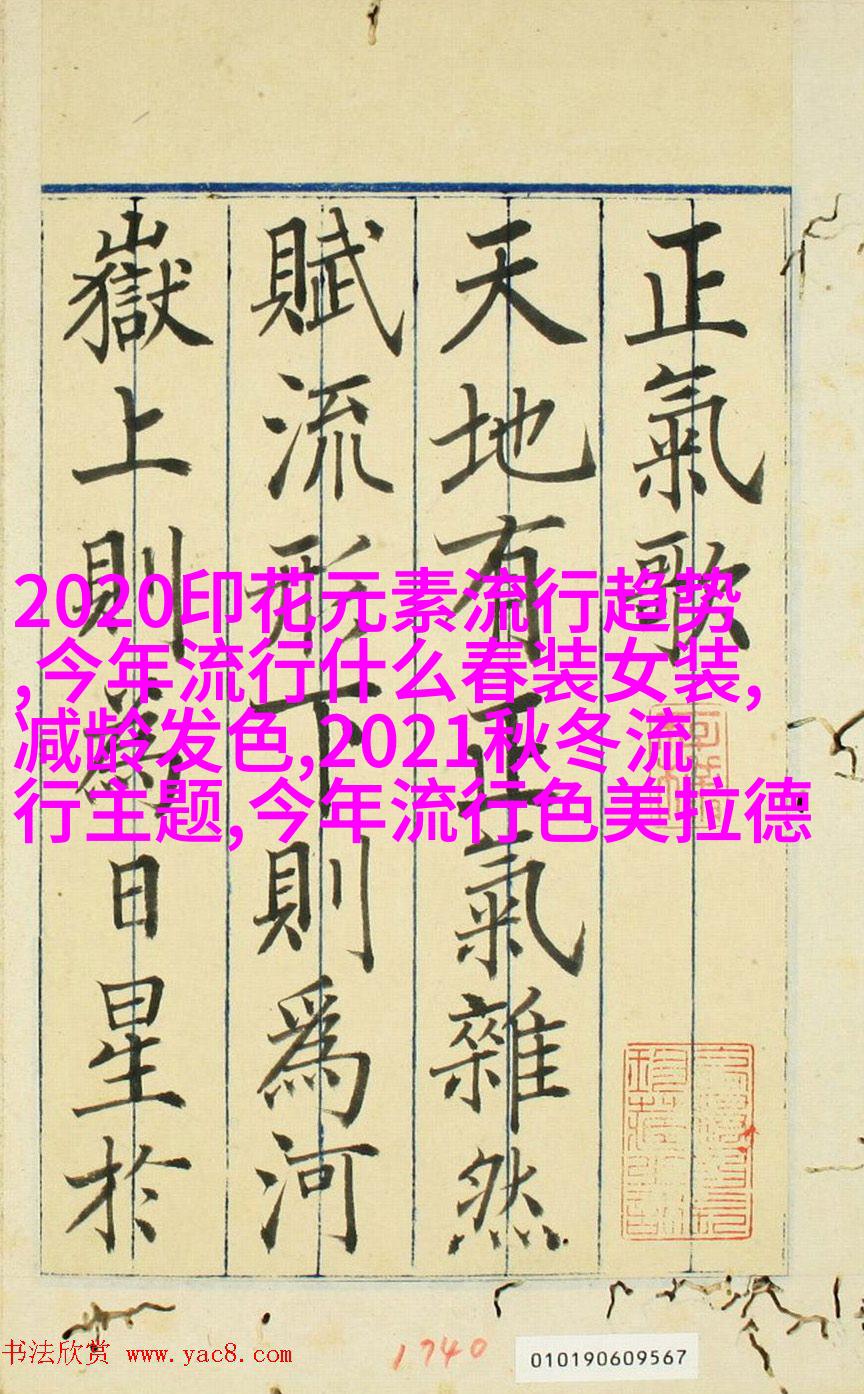 正氣歌
天地有正氣雜然
賦流形下則為河
嶽上則為日星於
2020印花元素流行趋势
,今年流行什么春装女装,
减龄发色,2021秋冬流
行主题,今年流行色美拉德
书法欣赏 www.yac8.com
1740
010190609567